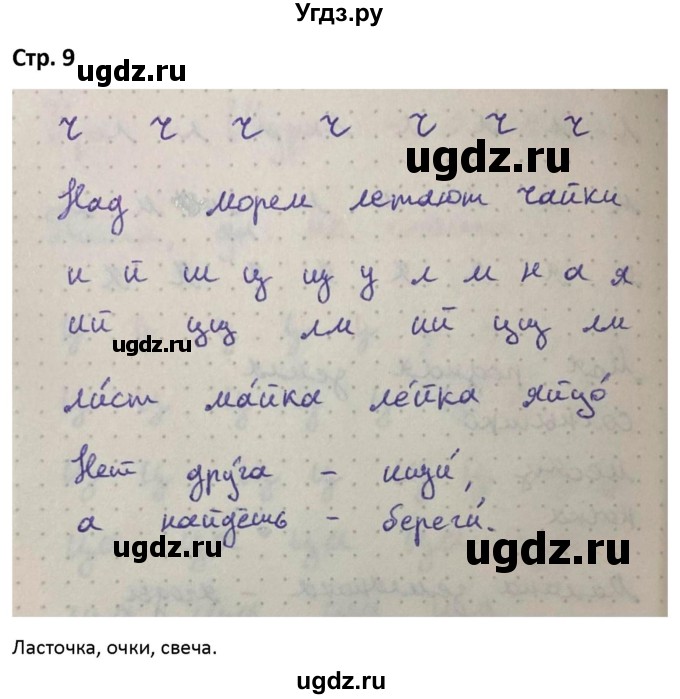 Угдз.ру
Стр. 9
ugdz.ru
ч ч ч ч ч ч ч
ugdz.ru
Над морем летают чайки
и й ш ц щ у л м н а я
ий цщ лм ий цщ лм
ugdz.ru
ли́ст ма́йка ле́йка яйцо́
Нет дру́га – ищи́,
а найдёшь – береги́.
ugdz.ru
ugdz.ru
ugdz.ru
Ласточка, очки, свеча.
ugdz.ru